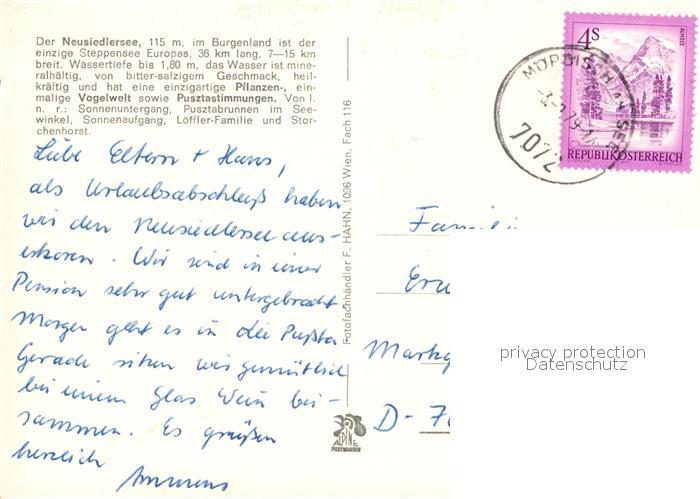 Der Neusiedlersee, 115 m, im Burgenland ist der
einzige Steppensee Europas, 36 km lang, 7—15 km
breit. Wassertiefe bis 1,80 m, das Wasser ist mine-
ralhältig, von bitter-salzigem Geschmack, heil-
kräftig und hat eine einzigartige Pflanzen-, ein-
malige Vogelwelt sowie Pusztastimmungen. Von l.
n. r.: Sonnenuntergang, Pusztabrunnen im See-
winkel, Sonnenaufgang, Löffler-Familie und Stor-
chenhorst.
Liebe Eltern + Hans,
als Urlaubsabschluß haben
wir den Neusiedlersee aus-
erkoren. Wir sind in einer
Pension sehr gut untergebracht
Morgen geht es in die Pußta
Gerade sitzen wir gemütlich
bei einem Glas Wein bei-
sammen. Es grüßen
herzlich
Fotofachhändler F. HAHN, 1096 Wien, Fach 116
ALPINE
POSTKARTEN
4S
ALMSEE
REPUBLIK ÖSTERREICH
MÖRBISCH AM SEE
7072
Familie
Markg
D-7
privacy protection
Datenschutz